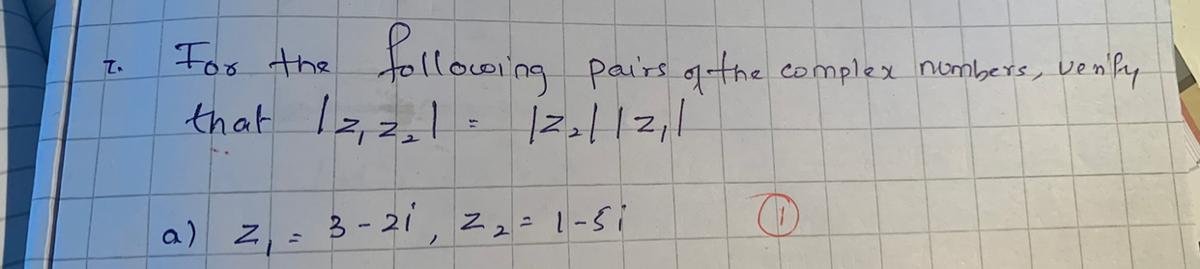 2. For the following pairs of the complex numbers, verify
that |z₁z₂| = |z₂||z₁|
a) z₁ = 3 - 2i, z₂ = 1 - 5i ①